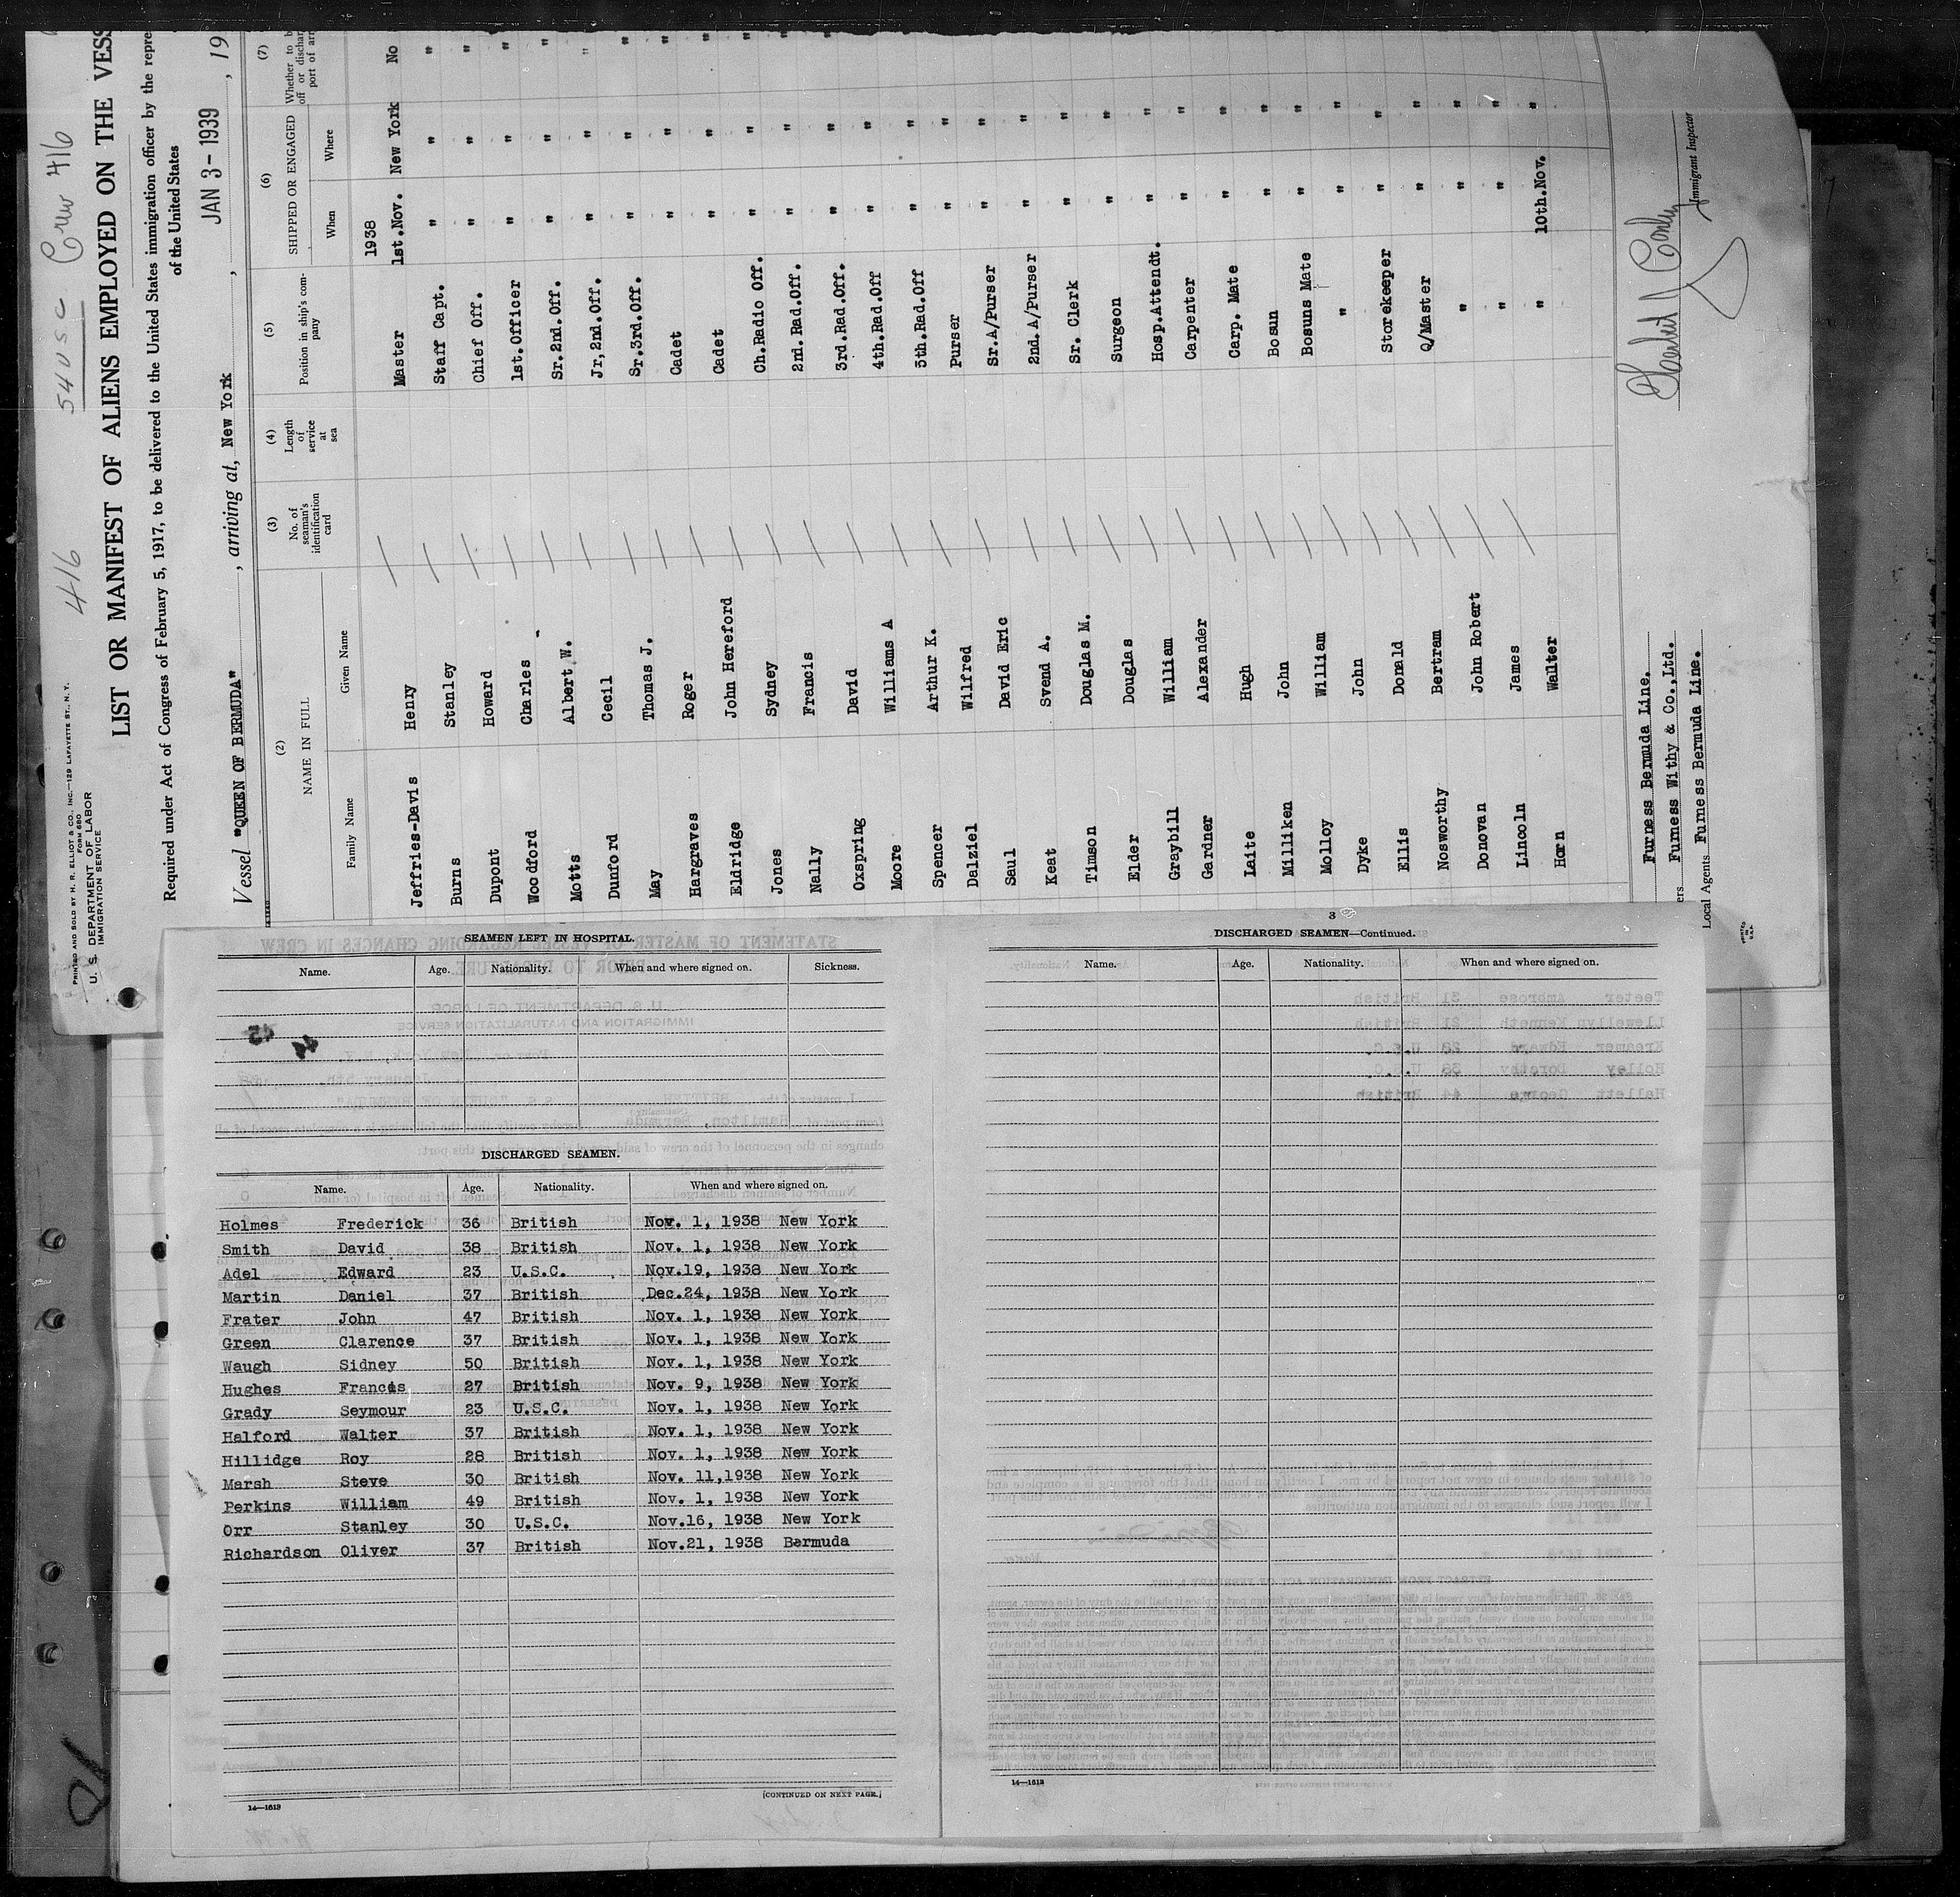 PRINTED AND SOLD BY H. R. ELLIOT & CO., INC.—129 LAFAYETTE ST., N. Y.
FORM 680
U. S. DEPARTMENT OF LABOR
IMMIGRATION SERVICE
416 54 USC Crew 416
LIST OR MANIFEST OF ALIENS EMPLOYED ON THE VESS
Required under Act of Congress of February 5, 1917, to be delivered to the United States immigration officer by the repre
of the United States
Vessel "QUEEN OF BERMUDA" , arriving at, New York , JAN 3 - 1939 , 19
(2) (3) (4) (5) (6) (7)
NAME IN FULL No. of seaman's identification card Length of service at sea Position in ship's company SHIPPED OR ENGAGED Whether to b
off or dischar
port of arr
Family Name Given Name When Where
1938
Jeffries-Davis Henry Master 1st.Nov. New York No
Burns Stanley Staff Capt. " " "
Dupont Howard Chief Off. " " "
Woodford Charles 1st.Officer " " "
Motts Albert W. Sr.2nd.Off. " " "
Dunford Cecil Jr,2nd.Off. " " "
May Thomas J. Sr.3rd.Off. " " "
Hargraves Roger Cadet " " "
Eldridge John Hereford Cadet " " "
Jones Sydney Ch.Radio Off. " " "
Nally Francis 2nd.Rad.Off. " " "
Oxspring David 3rd.Rad.Off. " " "
Moore Williams A 4th.Rad.Off " " "
Spencer Arthur K. 5th.Rad.Off " "
Dalziel Wilfred Purser " "
Saul David Eric Sr.A/Purser " "
Keat Svend A. 2nd.A/Purser " "
Timson Douglas M. Sr. Clerk " "
Elder Douglas Surgeon " "
Graybill William Hosp.Attendt. " "
Gardner Alexander Carpenter " "
Laite Hugh Carp. Mate " "
Milliken John Bosun " "
Molloy William Bosuns Mate " "
Dyke John " " "
Ellis Donald Storekeeper " "
Nosworthy Bertram Q/Master " "
Donovan John Robert " " "
Lincoln James " " "
Horn Walter " 10th.Nov. "
Furness Bermuda Line.
ers Furness Withy & Co.,Ltd.
Local Agents Furness Bermuda Line.
Immigrant Inspector
PRINTED
IN
U.S.A.
SEAMEN LEFT IN HOSPITAL.
Name. Age. Nationality. When and where signed on. Sickness.
DISCHARGED SEAMEN.
Name. Age. Nationality. When and where signed on.
Holmes Frederick 36 British Nov. 1, 1938 New York
Smith David 38 British Nov. 1, 1938 New York
Adel Edward 23 U.S.C. Nov.19, 1938 New York
Martin Daniel 37 British Dec.24, 1938 New York
Frater John 47 British Nov. 1, 1938 New York
Green Clarence 37 British Nov. 1, 1938 New York
Waugh Sidney 50 British Nov. 1, 1938 New York
Hughes Francis 27 British Nov. 9, 1938 New York
Grady Seymour 23 U.S.C. Nov. 1, 1938 New York
Halford Walter 37 British Nov. 1, 1938 New York
Hillidge Roy 28 British Nov. 1, 1938 New York
Marsh Steve 30 British Nov. 11,1938 New York
Perkins William 49 British Nov. 1, 1938 New York
Orr Stanley 30 U.S.C. Nov.16, 1938 New York
Richardson Oliver 37 British Nov.21, 1938 Bermuda
14—1613 [CONTINUED ON NEXT PAGE.]
3
DISCHARGED SEAMEN—Continued.
Name. Age. Nationality. When and where signed on.
14—1613